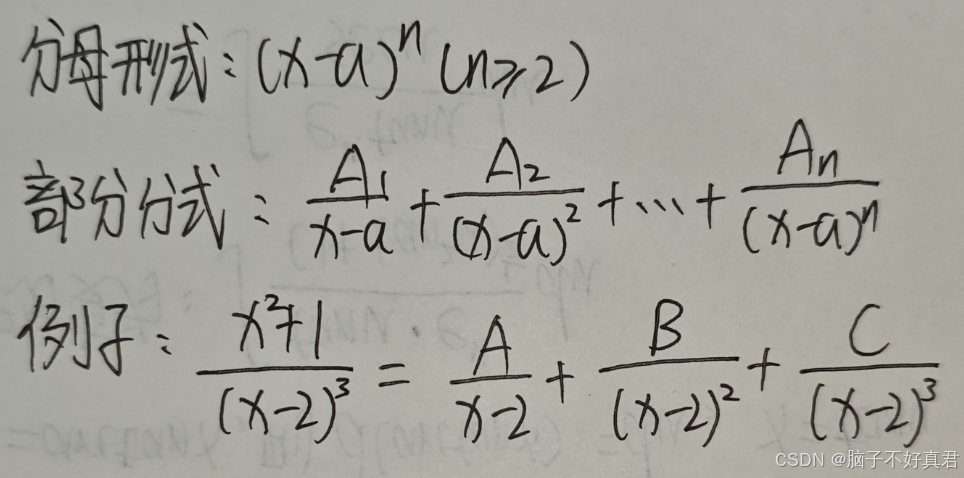 分母形式：(x-a)^n (n≥2)
部分分式：A₁/(x-a) + A₂/(x-a)² + ... + Aₙ/(x-a)^n
例子：(x²+1)/(x-2)³ = A/(x-2) + B/(x-2)² + C/(x-2)³
CSDN @脑子不好真君